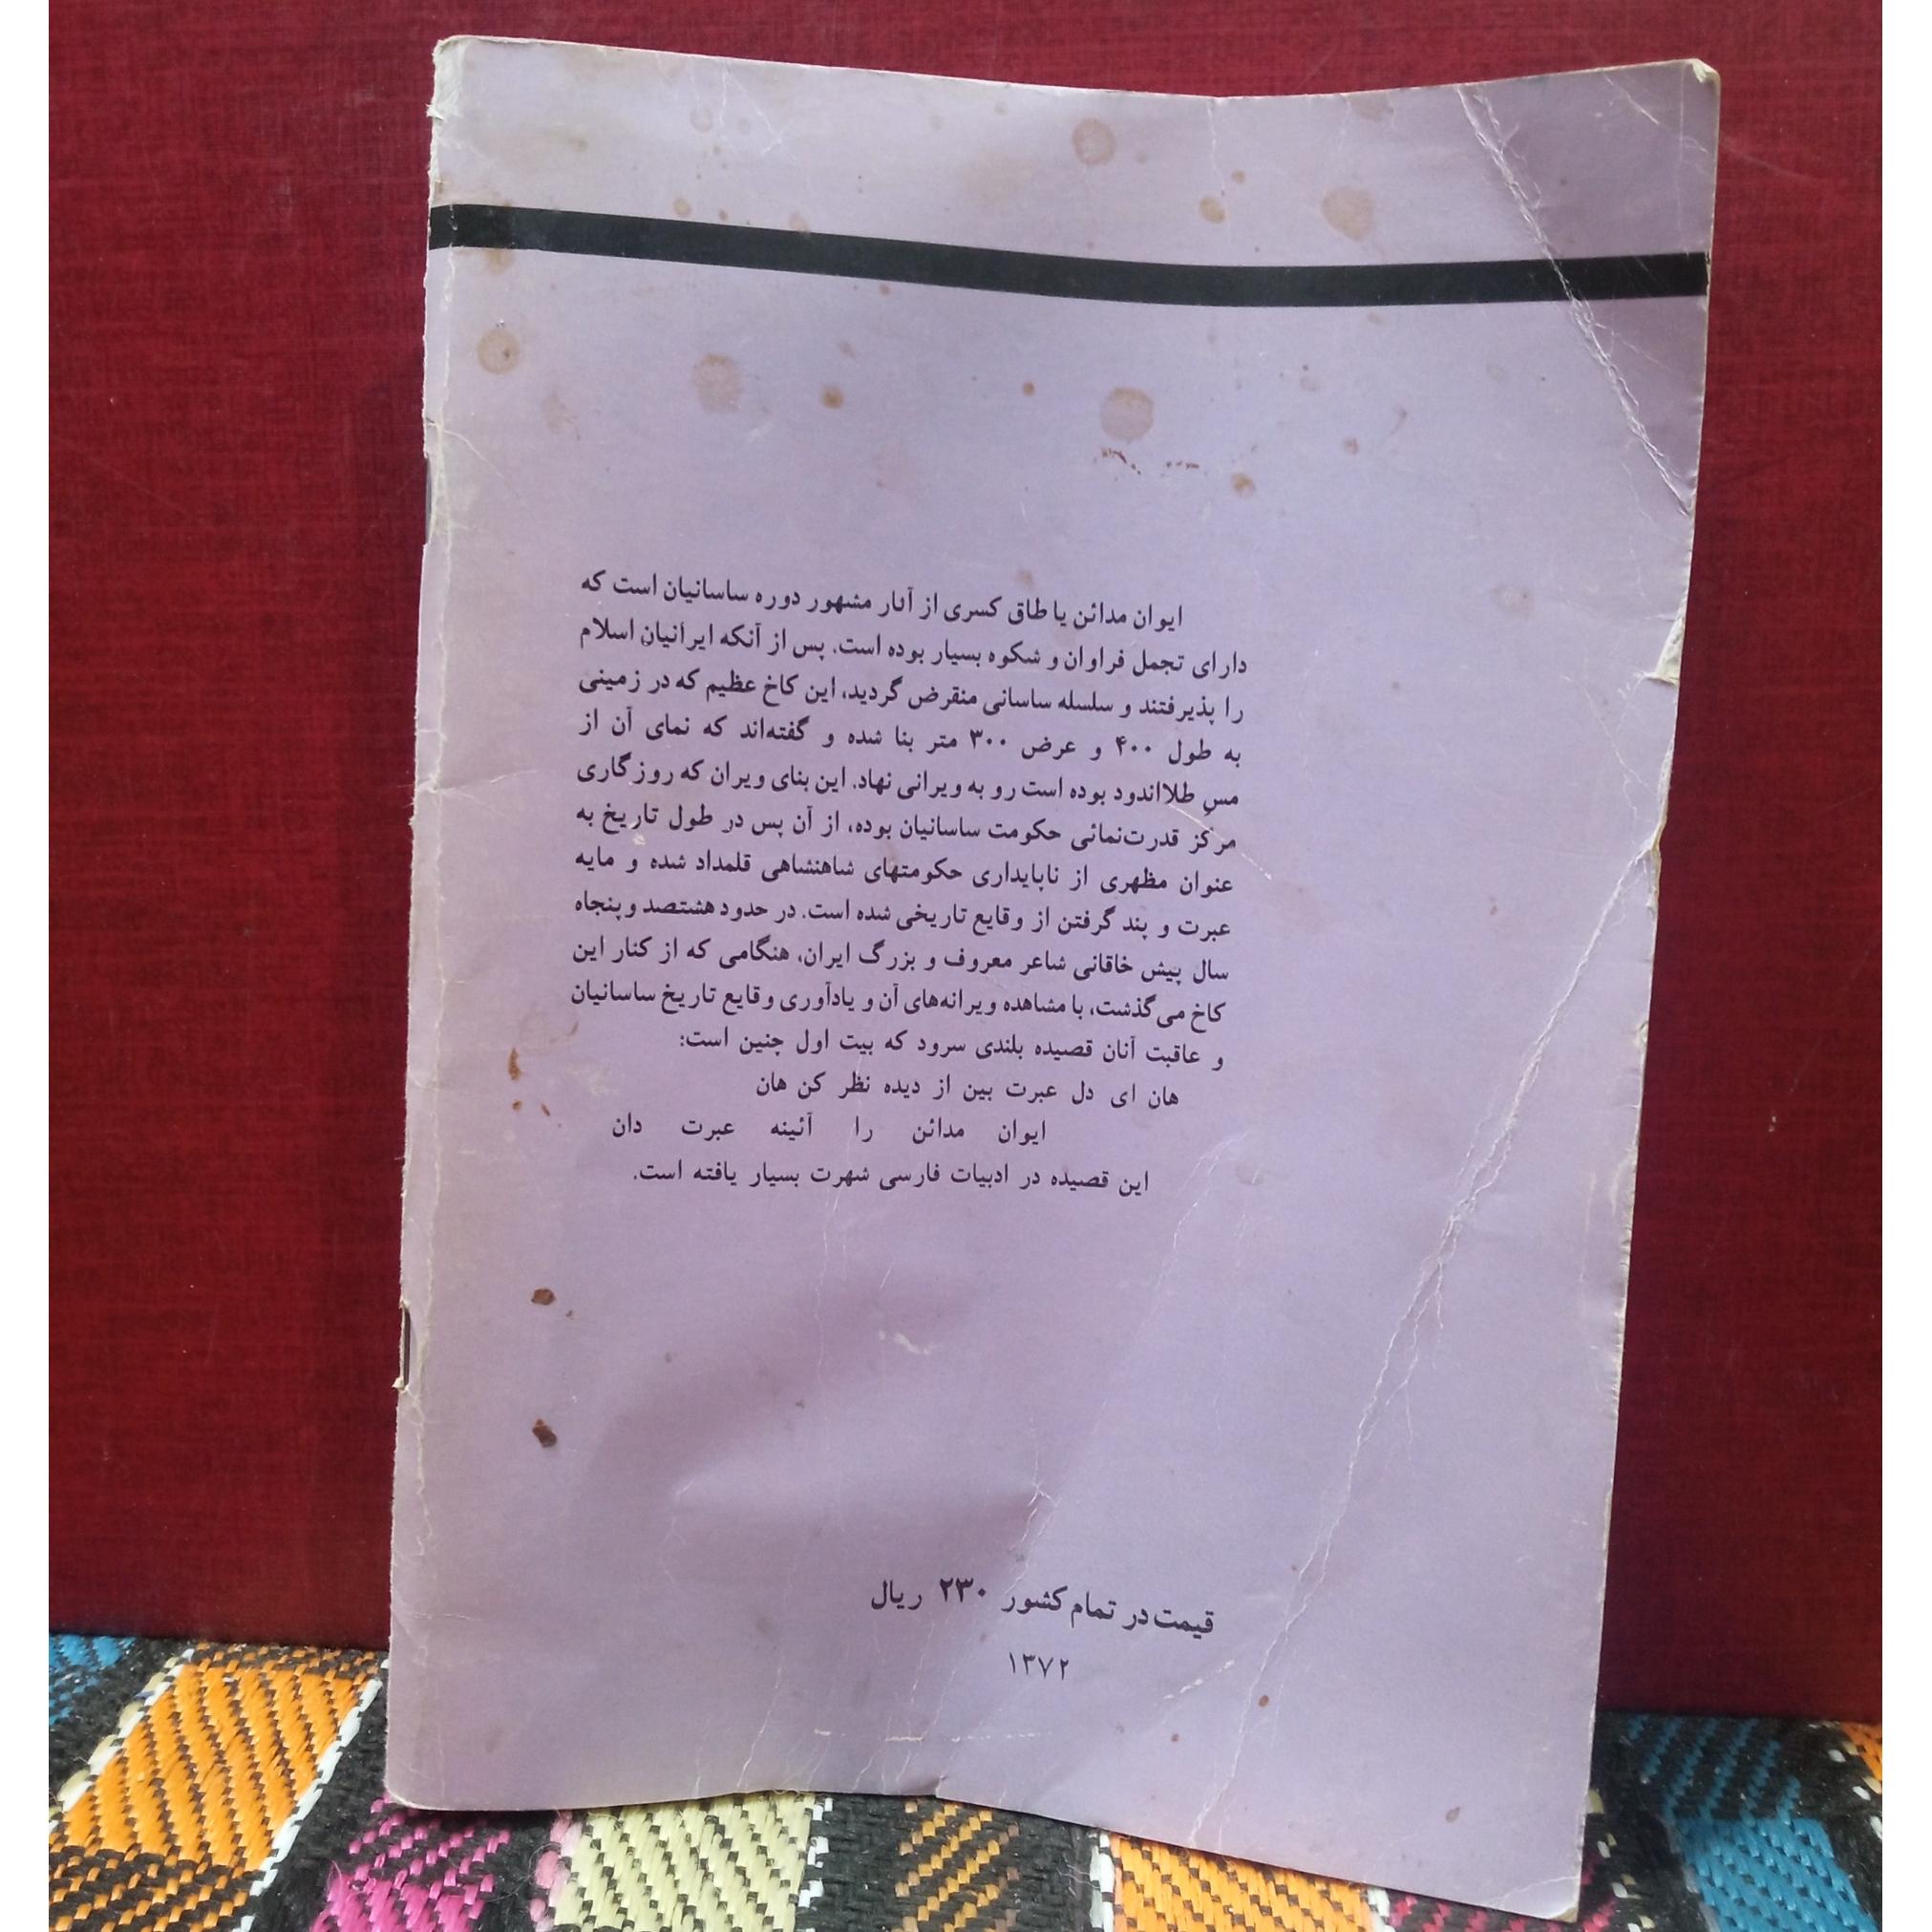 ایوان مدائن یا طاق کسری از آثار مشهور دوره ساسانیان است که
دارای تجمل فراوان و شکوه بسیار بوده است. پس از آنکه ایرانیان اسلام
را پذیرفتند و سلسله ساسانی منقرض گردید، این کاخ عظیم که در زمینی
به طول ۴۰۰ و عرض ۳۰۰ متر بنا شده و گفته‌اند که نمای آن از
مسِ طلااندود بوده است رو به ویرانی نهاد. این بنای ویران که روزگاری
مرکز قدرت‌نمائی حکومت ساسانیان بوده، از آن پس در طول تاریخ به
عنوان مظهری از ناپایداری حکومتهای شاهنشاهی قلمداد شده و مایه
عبرت و پند گرفتن از وقایع تاریخی شده است. در حدود هشتصد و پنجاه
سال پیش خاقانی شاعر معروف و بزرگ ایران، هنگامی که از کنار این
کاخ می‌گذشت، با مشاهده ویرانه‌های آن و یادآوری وقایع تاریخ ساسانیان
و عاقبت آنان قصیده بلندی سرود که بیت اول چنین است:
هان ای دل عبرت بین از دیده نظر کن هان
ایوان مدائن را آئینه عبرت دان
این قصیده در ادبیات فارسی شهرت بسیار یافته است.
قیمت در تمام کشور ۲۳۰ ریال
۱۳۷۲